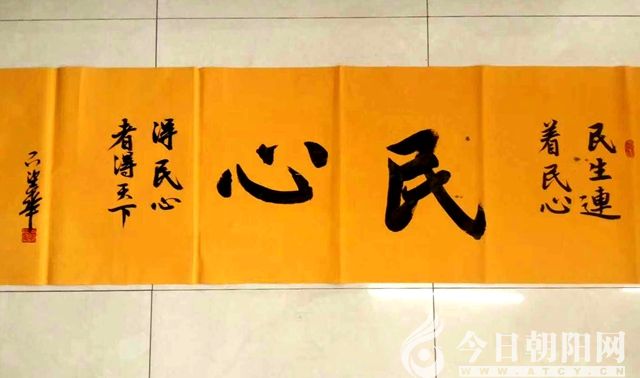 民生連
着民心
民心
得民心
者得天下
今日朝阳网
WWW.ATCY.CN